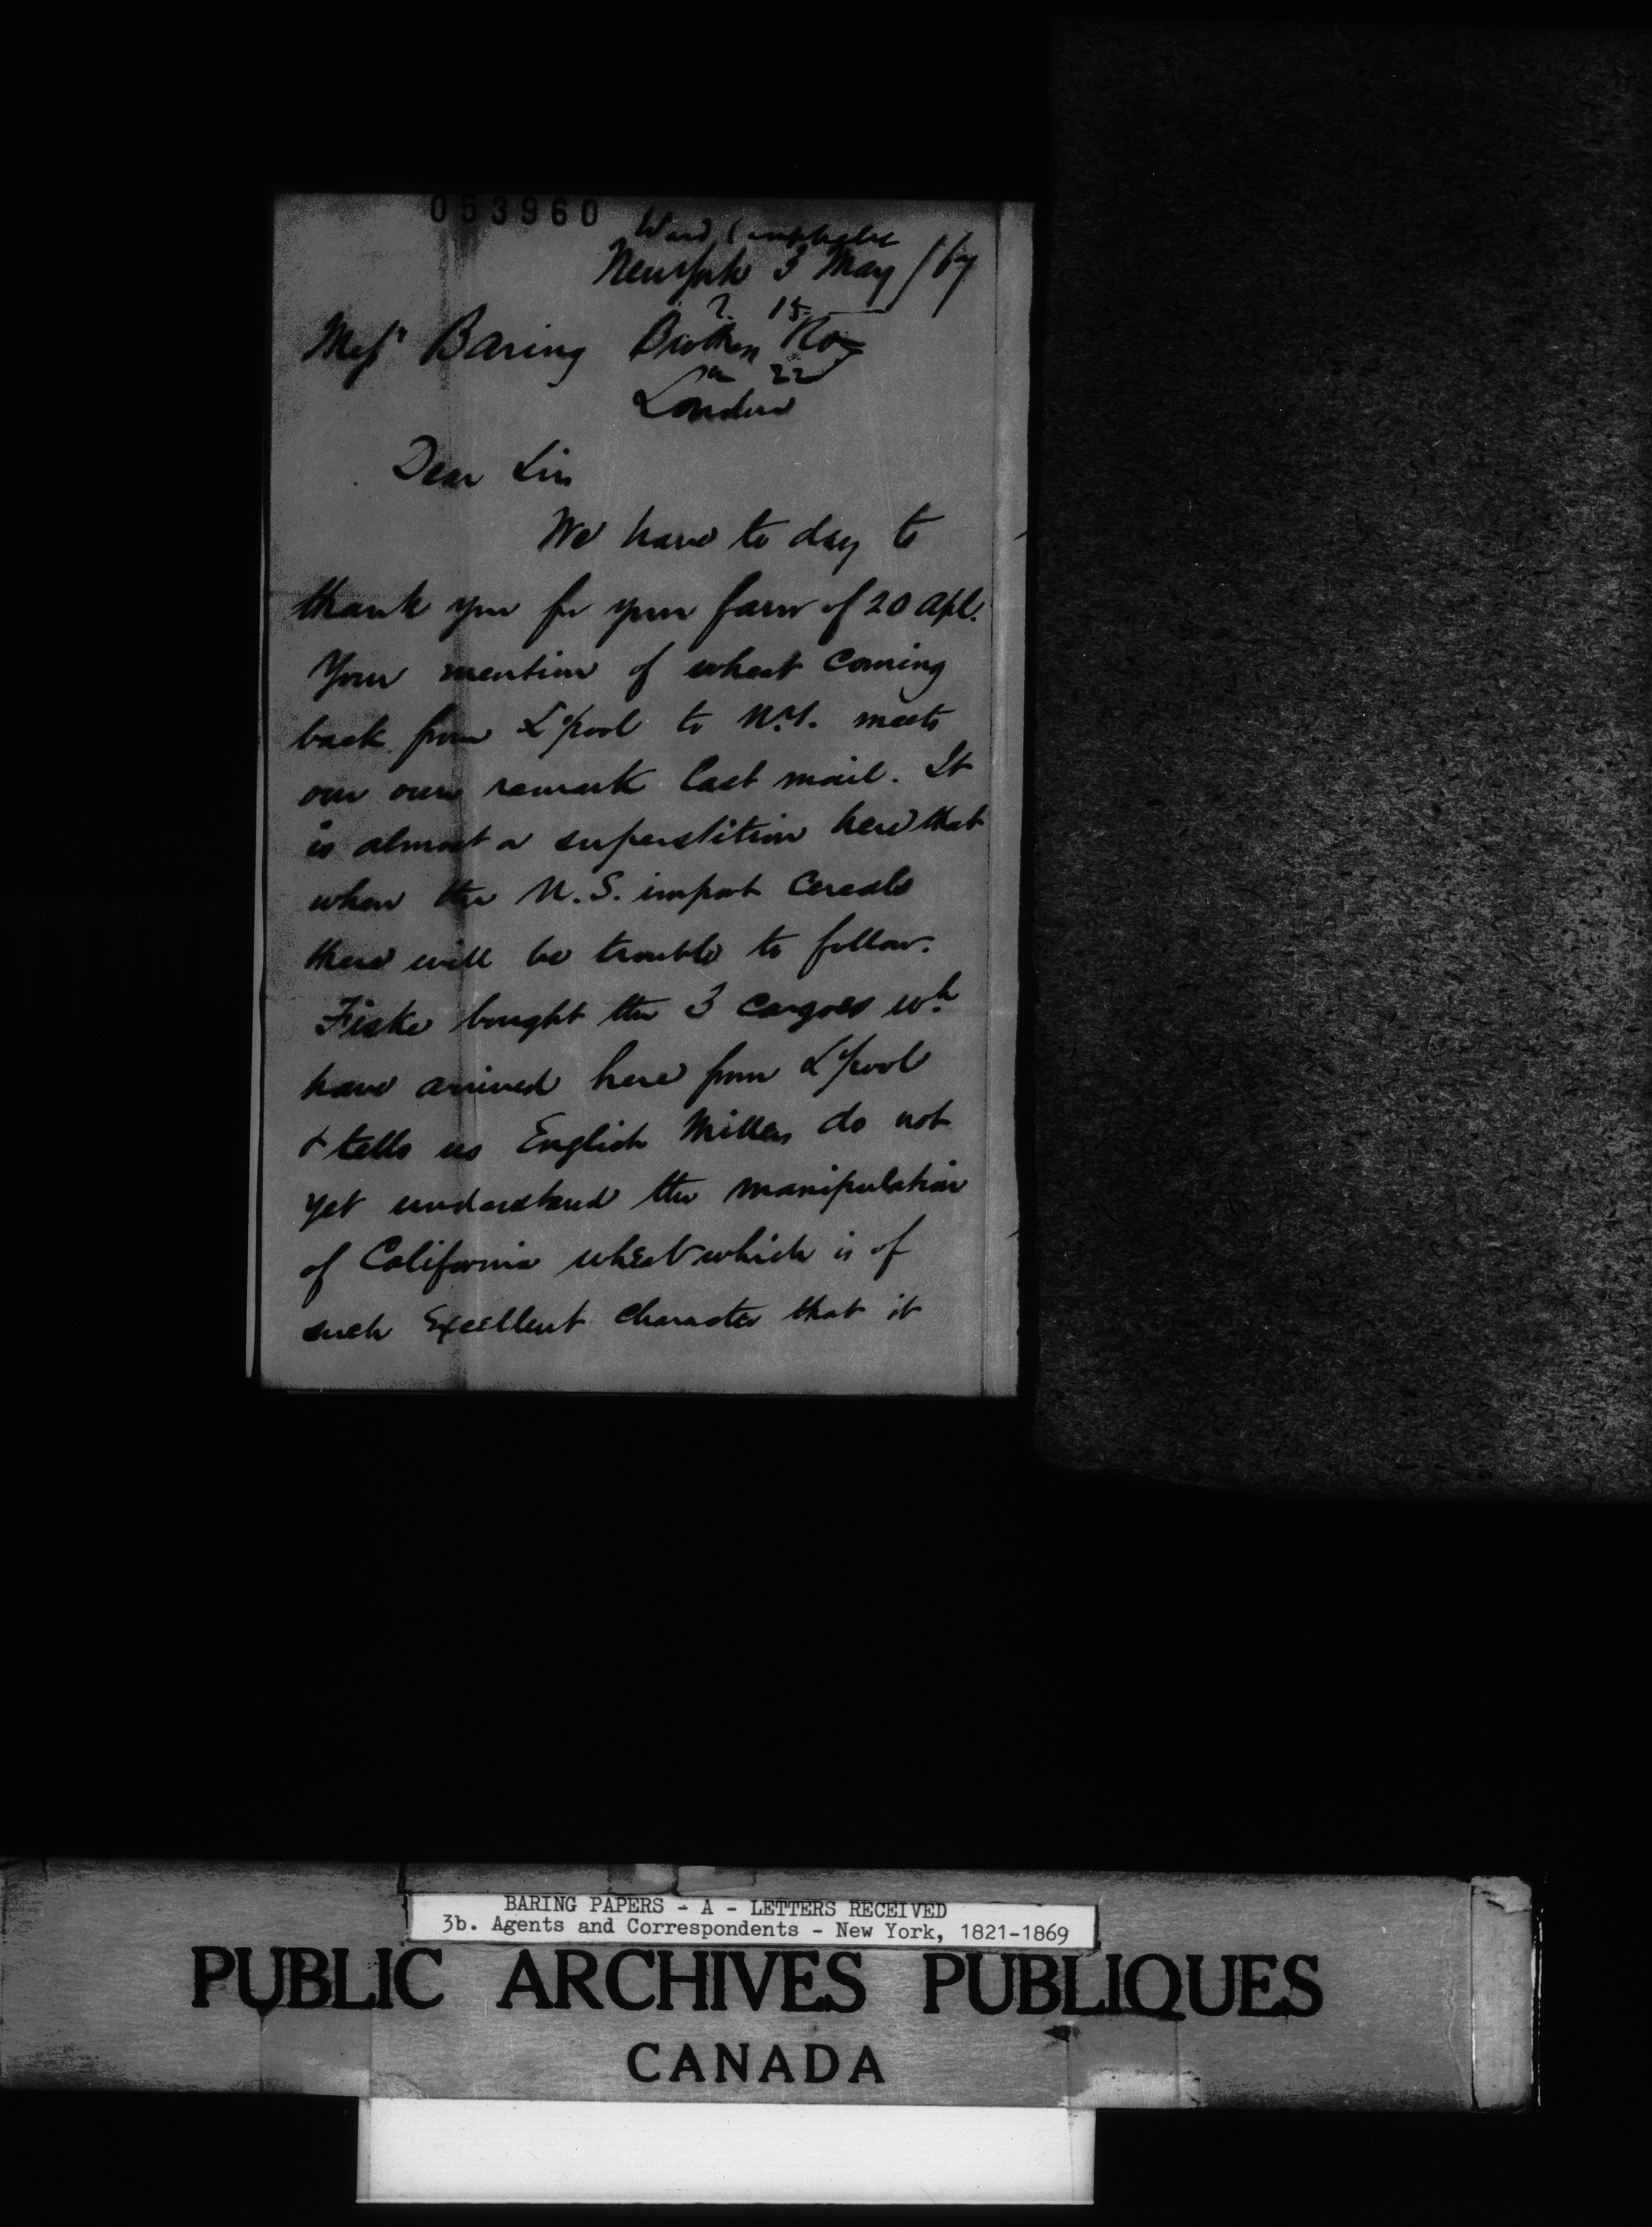 053960
Ward Campbell
New York 3 May /67
? 15
Messrs Baring Brothers & Co
22
London
Dear Sirs
We have to day to
thank you for your favor of 20 Apl.
Your mention of wheat coming
back from L'pool to N.Y. meets
our own remark last mail. It
is almost a superstition here that
when the U.S. import cereals
there will be trouble to follow.
Fiske bought the 3 cargoes wh
have arrived here from L'pool
& tells us English Millers do not
yet understand the manipulation
of California wheat which is of
such Excellent character that it
BARING PAPERS - A - LETTERS RECEIVED
3b. Agents and Correspondents - New York, 1821-1869
PUBLIC ARCHIVES PUBLIQUES
CANADA